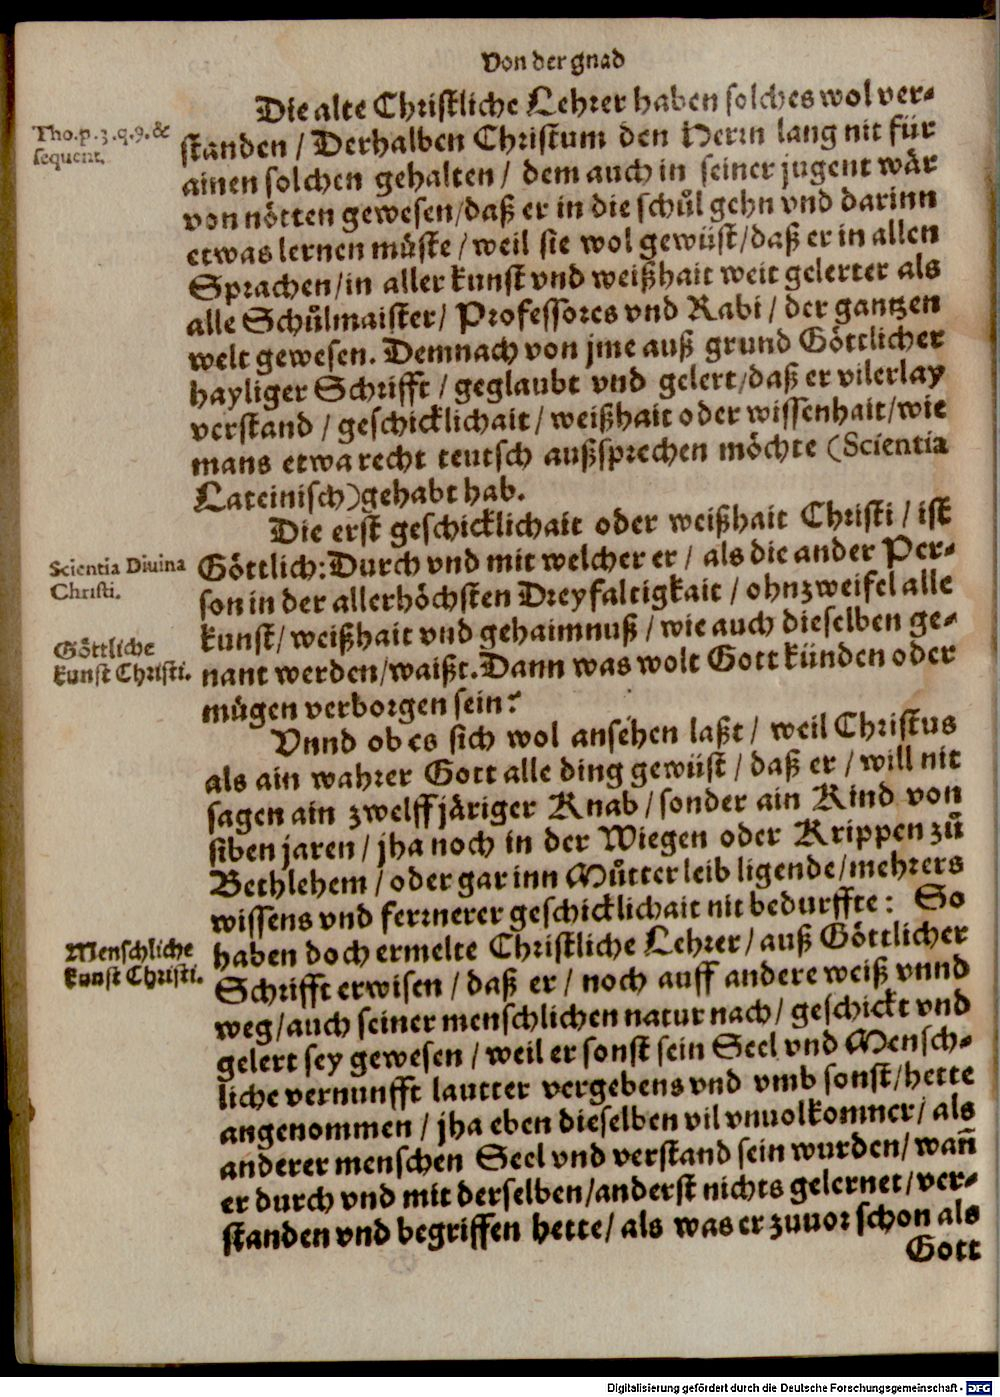 Von der gnad
Die alte Christliche Lehrer haben solches wol ver-
Tho.p.3.q.9.&
sequent.
standen / Derhalben Christum den Herrn lang nit für
ainen solchen gehalten / dem auch in seiner jugent wär
von nötten gewesen/daß er in die schůl gehn vnd darinn
etwas lernen müste / weil sie wol gewüst/daß er in allen
Sprachen/in aller kunst vnd weißhait weit gelerter als
alle Schůlmaister/ Professores vnd Rabi / der gantzen
welt gewesen. Demnach von jme auß grund Göttlicher
hayliger Schrifft / geglaubt vnd gelert/daß er vilerlay
verstand / geschicklichait / weißhait oder wissenhait/wie
mans etwa recht teutsch außsprechen möchte (Scientia
Lateinisch)gehabt hab.
Die erst geschicklichait oder weißhait Christi / ist
Scientia Diuina
Christi.
Göttlich: Durch vnd mit welcher er / als die ander Per-
son in der allerhöchsten Dreyfaltigkait / ohnzweifel alle
Göttliche
kunst Christi.
kunst/ weißhait vnd gehaimnuß / wie auch dieselben ge-
nant werden/waißt. Dann was wolt Gott künden oder
mügen verborgen sein?
Vnnd ob es sich wol ansehen laßt / weil Christus
als ain wahrer Gott alle ding gewüst / daß er / will nit
sagen ain zwelffjäriger Knab / sonder ain Kind von
siben jaren / jha noch in der Wiegen oder Krippen zů
Bethlehem / oder gar inn Můtter leib ligende/mehrers
wissens vnd ferrnerer geschicklichait nit bedurffte: So
Menschliche
kunst Christi.
haben doch ermelte Christliche Lehrer/ auß Göttlicher
Schrifft erwisen / daß er / noch auff andere weiß vnnd
weg/auch seiner menschlichen natur nach/ geschickt vnd
gelert sey gewesen / weil er sonst sein Seel vnd Mensch-
liche vernunfft lautter vergebens vnd vmb sonst/hette
angenommen / jha eben dieselben vil vnuolkomner/ als
anderer menschen Seel vnd verstand sein wurden/ wañ
er durch vnd mit derselben/anderst nichts gelernet/ ver-
standen vnd begriffen hette/ als was er zuuor schon als
Gott
Digitalisierung gefördert durch die Deutsche Forschungsgemeinschaft - DFG